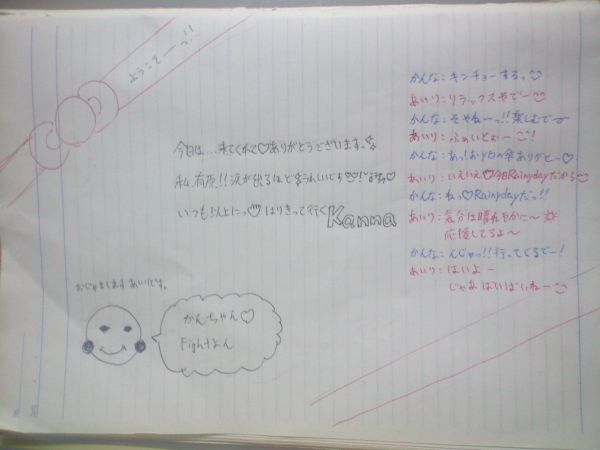 ようこそーっ!!
今日は…来てくれて♡ありがとうございます。
私、有原!! 涙が出るほどうれしいです
いつも以上にっ はりきって行く
Kanna
おじゃまします あいりです。
かんちゃん♡
Fightよん
かんな:キンチョーするっ
あいり:リラックスやでー
かんな:そやねーっ!!楽しむでー
あいり:ふぁいとぉー!
かんな:あっ!おりたた傘ありがとー♡
あいり:いえいえ♡今日Rainydayだから
かんな:ねっ♡Rainydayだっ!!
あいり:気分は晴れやかに〜
応援してるよ〜
かんな:んじゃっ!!行ってくるでー!
あいり:はいよー
じゃあ ばいばいねー